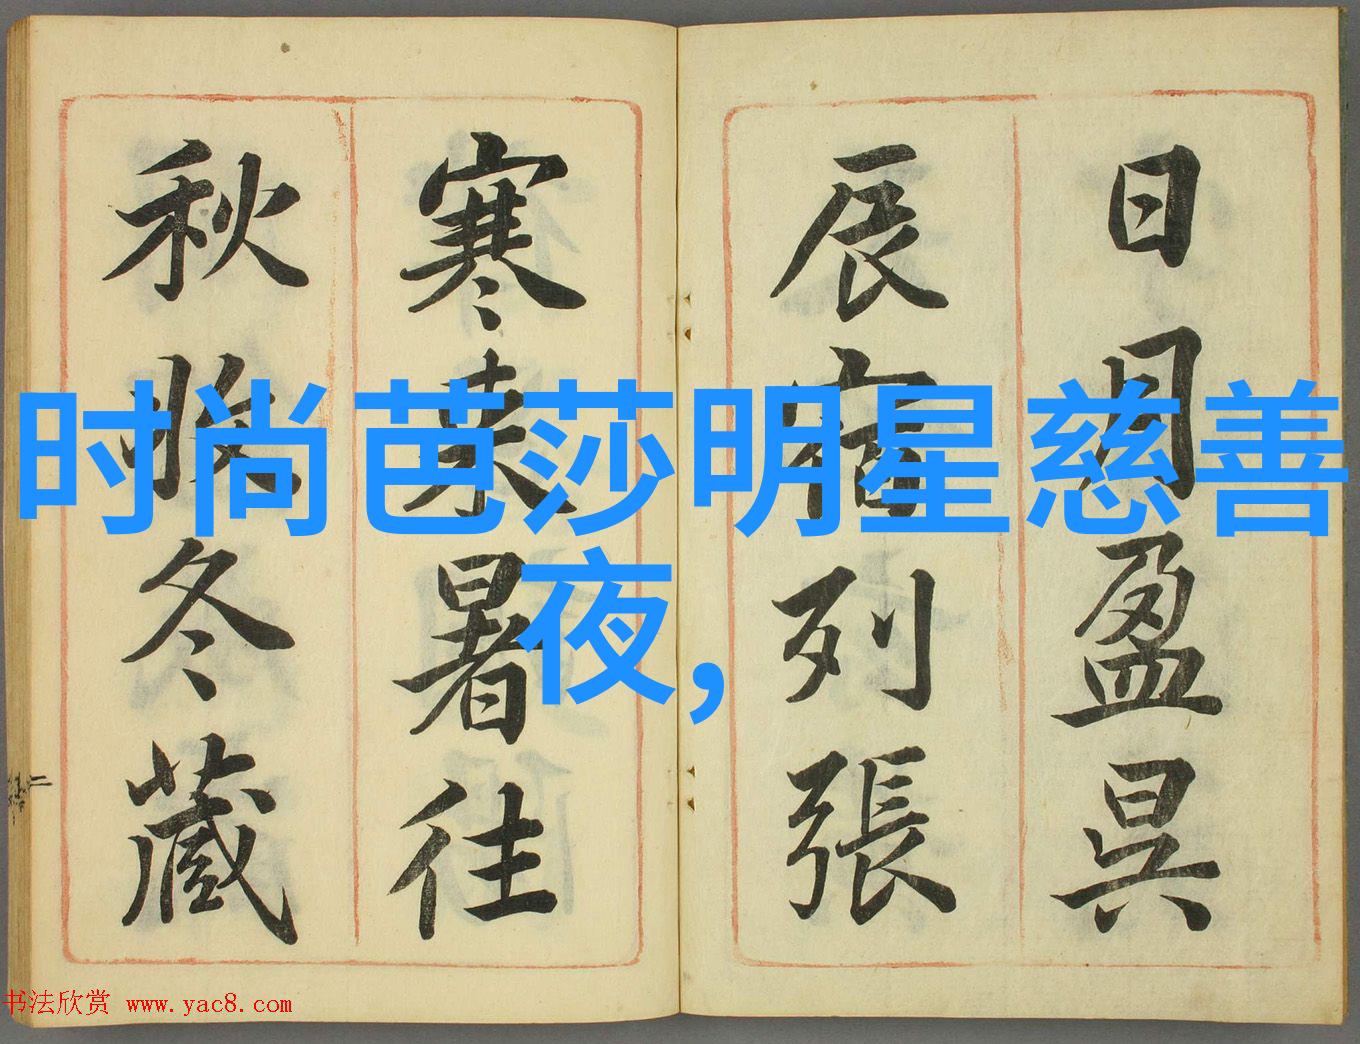 日月盈昃
辰宿列張
寒来暑往
秋收冬藏
时尚芭莎明星慈善
夜,
书法欣赏 www.yac8.com